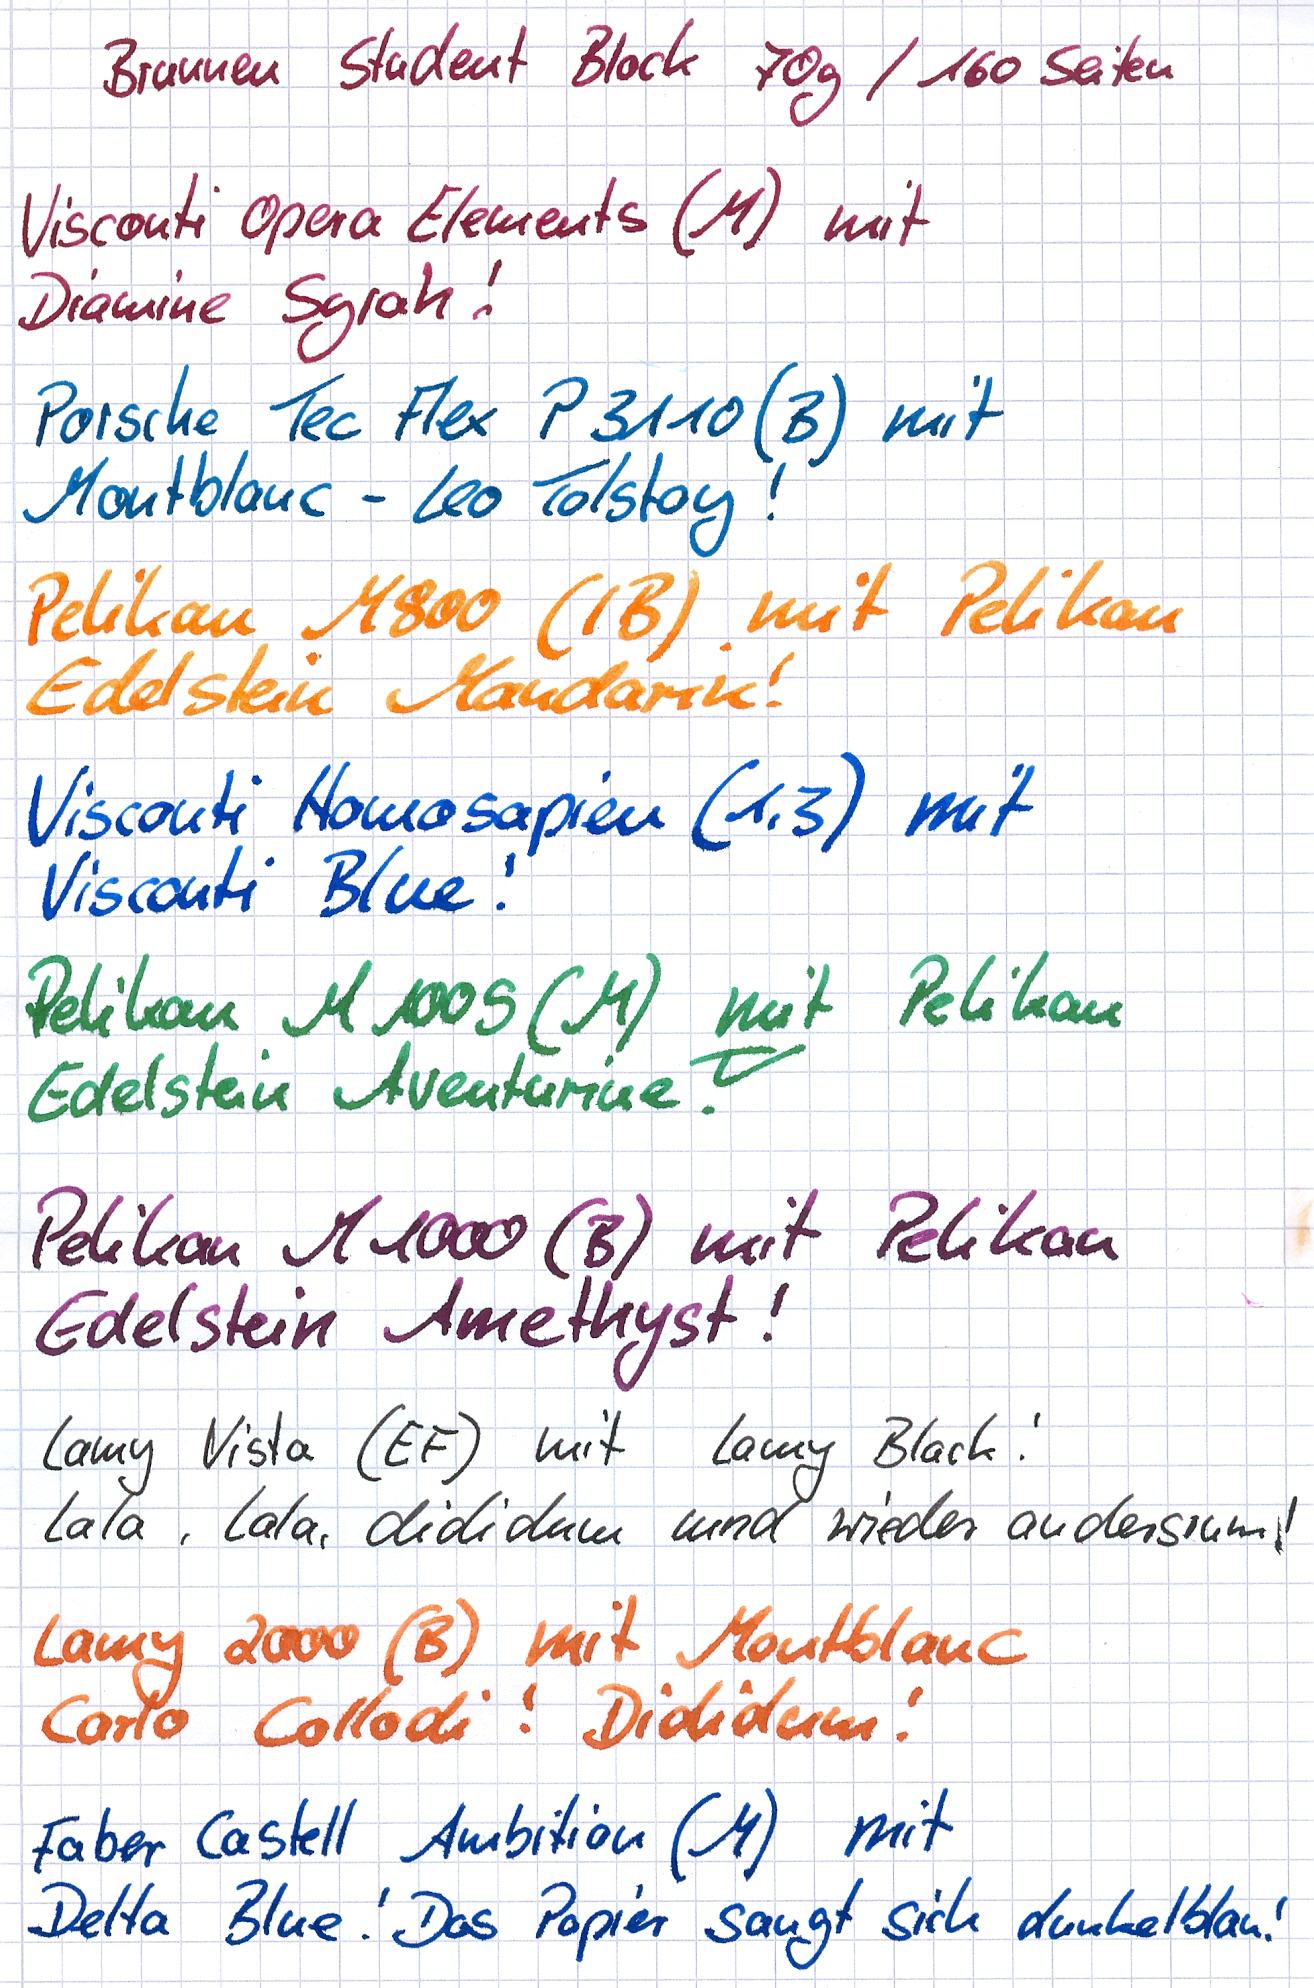 Brunnen Student Block 70g / 160 Seiten
Visconti Opera Elements (M) mit
Diamine Syrah!
Porsche Tec Flex P3110 (B) mit
Montblanc - Leo Tolstoy!
Pelikan M800 (IB) mit Pelikan
Edelstein Mandarin!
Visconti Homosapien (1,3) mit
Visconti Blue!
Pelikan M1005 (M) mit Pelikan
Edelstein Aventurine!
Pelikan M1000 (B) mit Pelikan
Edelstein Amethyst!
Lamy Vista (EF) mit Lamy Black!
Lala, Lala, dididum und wieder andersrum!
Lamy 2000 (B) mit Montblanc
Carlo Collodi! Dididum!
Faber Castell Ambition (M) mit
Delta Blue! Das Papier saugt sich dunkelblau!